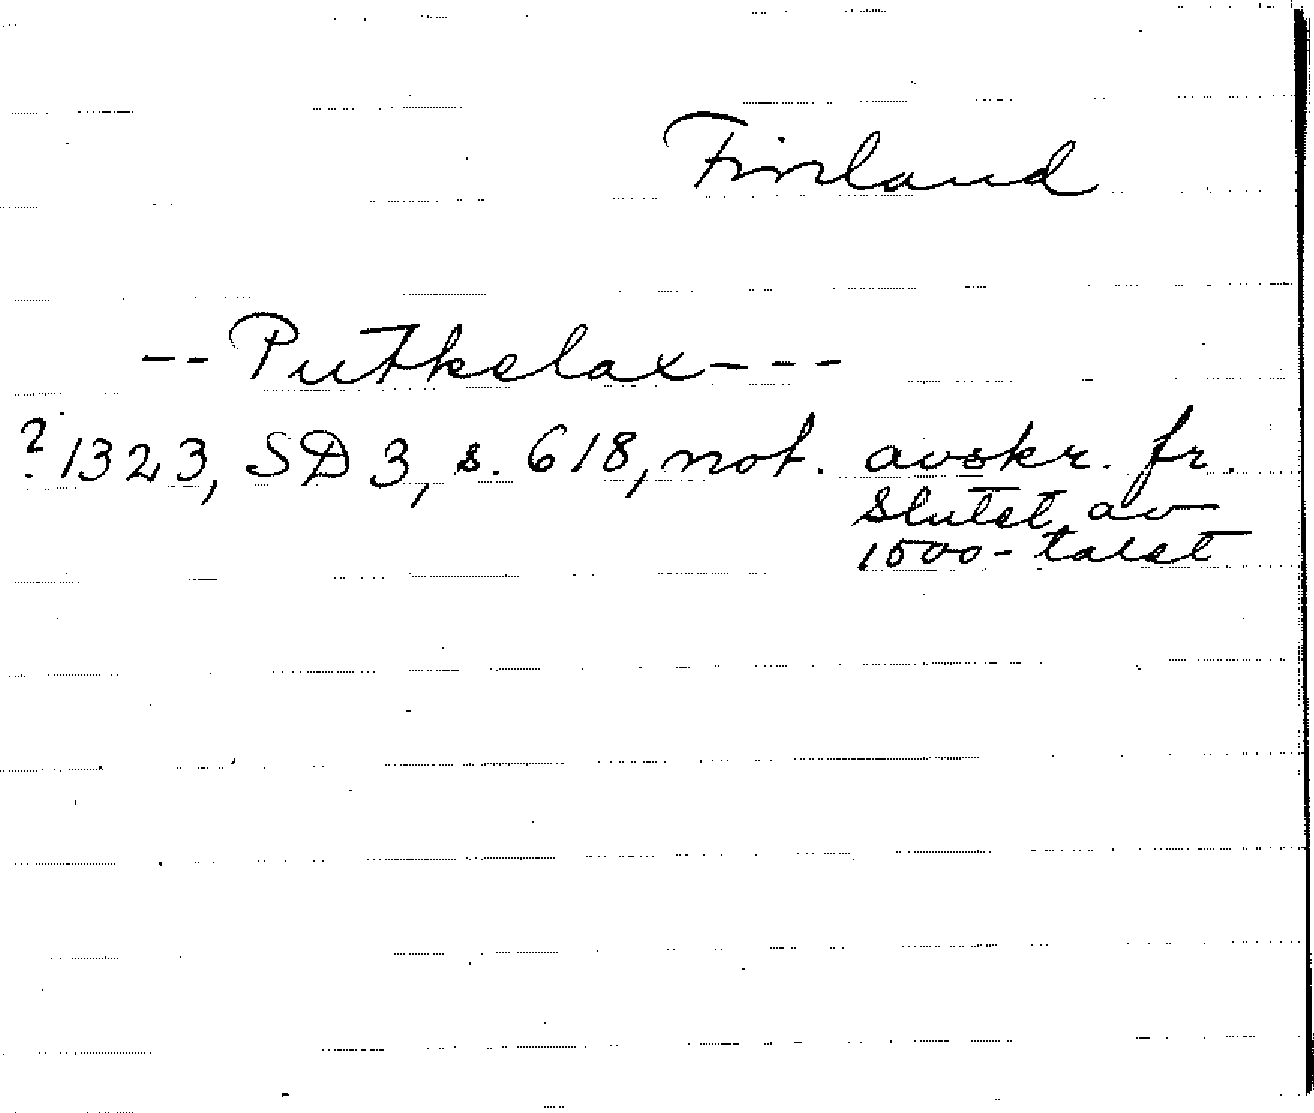 Finland
-- Putkelax ---
? 1323, SD 3, s. 618, not. avskr. fr.
slutet av
1500-talet